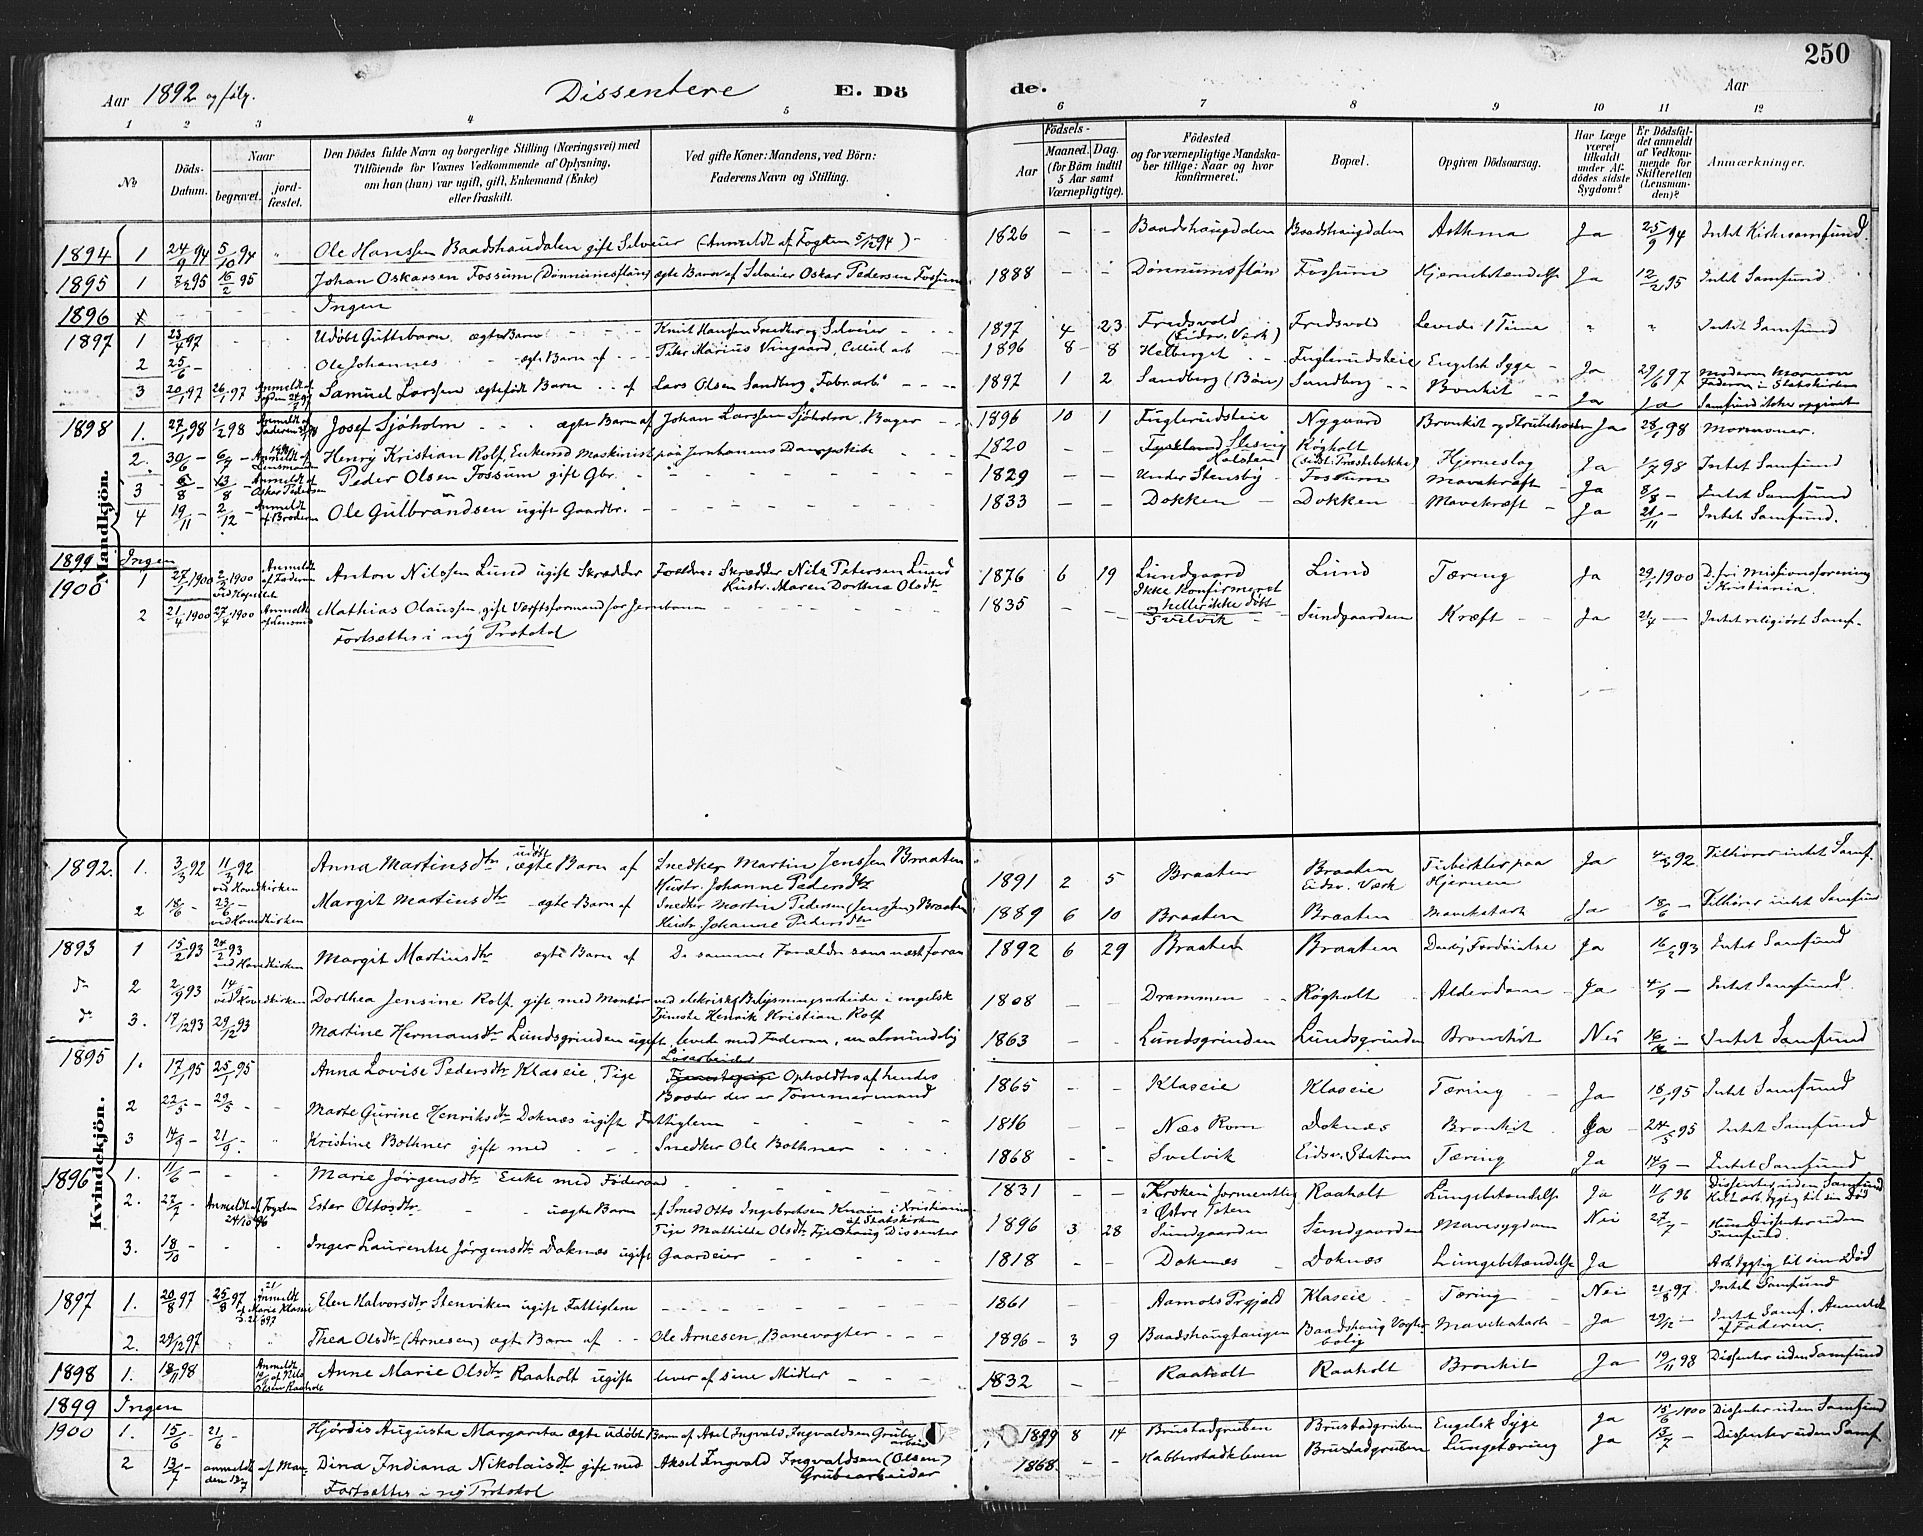 250
Aar 1892 og følg. Dissentere E. Dö de. Aar
1 2 3 4 5 6 7 8 9 10 11 12
No
Döds-Datum.
Naar begravet. jordfæstet.
Den Dödes fulde Navn og borgerlige Stilling (Næringsvei) med Tilföiende for Voxnes Vedkommende af Oplysning, om han (hun) var ugift, gift, Enkemand (Enke) eller fraskilt.
Ved gifte Koner: Mandens, ved Börn: Faderens Navn og Stilling.
Födsels- Aar Maaned. Dag. (for Börn indtil 5 Aar samt Værnepligtige).
Födested og for værnepligtige Mandskaber tillige: Naar og hvor konfirmeret.
Bopæl.
Opgiven Dödsaarsag.
Har Læge været tilkaldt under Afdödes sidste Sygdom?
Er Dödsfaldet anmeldt af Vedkommende for Skifteretten (Lensmanden)?
Anmærkninger.
Mandkjön.
1894 1 24/9 94 5/10 94 " Ole Hanssen Baadshaudalen gift Selveier (Anmeldt af Fogden 5/12 94) 1826 - - Baadshaugdalen Baadshaugdalen Asthma Ja 25/9 94 Intet Kirkesamfund.
1895 1 7/2 95 16/2 95 Johan Oskarsen Fossum (Dønnumsflan) ægte Barn af Selveier Oskar Pedersen Fossum 1888 - - Dønnumsflan Fossum Hjernebetændelse Ja 12/2 95 Intet Samfund
1896 Ingen
1897 1 23/4 97 Udøbt Guttebarn ægte Barn Knut Hansen Snedker og Selveier 1897 4 23 Fredsvold (Eidsv. Værk) Fredsvold Levede 1 Time " " Intet Samfund
2 25/6 - Ole Johannes ægte Barn af Marius Vingaard, Cellul arb 1896 8 8 Helberget Fuglerudsteie Engelsk Syge Ja 29/6 97 Moderen Mormon Faderen i Statskirken
3 20/1 97 26/1 97 Samuel Larssen ægtefødt Barn af Lars Olsen Sandberg, Fabr.arb 1897 1 2 Sandberg Sandberg Bronkit Ja Ja Samfund ikke opgivet
1898 1. 27/1 98 1/2 98 Josef Sjøholm ægte Barn af Johan Larssen Sjøholm, Bager 1896 10 1 Fuglerudsteie Nygaard Bronkit og Strubehoste Ja 28/1 98 Mormoner.
2. 30/6 - 6/7 - Anmeldt af Lensmanden Henry Kristian Rolf Enkemd Maskinist paa Jernbanens Dampskibe 1820 Tyskland Slesvig Holsten Røgholt (sidst: Træstebakke) Hjerneslag Ja 1/7 98 Intet Samfund
3 8/8 - 13/8 - Anmeldt af Oskar Pedersen Peder Olsen Fossum gift Gbr. 1829 - - Under Stensby Fossum Mavekræft Ja 8/8 - Intet Samfund
4 19/11 - 2/12 - Anmeldt af Broderen Ole Gulbrandsen ugift Gaardbr. 1833 - - Dokken Dokken Mavekræft Ja 21/11 - Intet Samfund.
1899 Ingen
1900 1 27/1 1900 2/3 1900 ved Kapellet Anmeldt af Faderen Anton Nilssen Lund ugift Skrædder Forældre: Skrædder Nils Petersen Lund Hustr. Maren Dorthea Olsdtr 1876 6 19 Lundgaard Ikke Konfirmeret og heller ikke døbt Lund Tæring Ja 29/1 1900 D. fri Missionsforening i Kristiania.
2 21/4 1900 27/4 1900 Anmeldt af Lensmd Mathias Olaussen, gift Værftsformand for Jernbanen 1835 - - Svelvik Sundgaarden Kræft Ja 21/4 - Intet religiøst Samf.
Fortsættes i ny Protokol
Kvindekjön.
1892. 1. 3/3 92 11/3 92 ved Hovedkirken Anna Martinsdtr, udøbt ægte Barn af Snedker Martin Jenssen Braaten Hustr. Johanne Pedersdtr 1891 2 5 Braaten Braaten Eidsv. Værk Tuberkler paa Hjernen Ja 4/3 92 Tilhører intet Samf.
2 18/6 - 23/6 - ved Hovedkirken Margit Martinsdtr ægte Barn af Snedker Martin Pedersen (Jenssen) Braaten Hustr. Johanne Pedersdtr 1889 6 10 Braaten Braaten Mavekatarh Ja 18/6 - Tilhører intet Samfund
1893 1 15/2 93 24/2 93 ved Hovedkirken Margit Martinsdtr ægte Barn af De samme Forældre som næst foran 1892 6 29 Braaten Braaten Daarlig Fordøielse Ja 16/2 93 Intet Samfund
do 2 2/9 93 14/9 - ved Hovedkirken Dorthea Jensine Rolf, gift med Montør ved elektriske Belysningsarbeide i engelsk Tjeneste Henrik Kristian Rolf 1808 - - Drammen Røgholt Alderdom Ja 4/9 - Intet Samfund
do 3. 17/12 93 29/12 93 Martine Hermansdtr Lundsgrinden ugift, levede med Faderen, en almindelig Løsarbeider 1863 - - Lundsgrinden Lundsgrinden Bronchit Nei Intet Samfund
1895 1. 17/1 95 25/1 95 Anna Lovise Pedersdtr Klaseie, Pige Opholdtes af hendes Broder der er Tømmermand 1865 - - Klaseie Klaseie Tæring Ja 18/1 95 Intet Samfund
2 22/5 - 29/5 - Marte Gurine Henriksdtr Doknæs ugift Fattiglem 1816 - - Næs Rom Doknæs Bronkit Ja 24/5 95 Intet Samfund
3 14/9 - 21/9 - Kristine Bothner gift med Snedker Ole Bothner 1868 - - Svelvik Eidsv. Station Tæring Ja 14/9 - Intet Samfund
1896 1. 11/6 - Marie Jørgensdtr Enke med Føderaad 1831 - - "Kroken" formentlig i Østre Toten Raaholt Lungebetændelse Ja 11/6 96 Dissenter uden Samfund
2. 27/7 - Anmeldt af Fogden 24/10 96 Ester Ottosdtr uægte Barn af Smed Otto Ingebretsen Knain i Kristiania af Statskirken Pige Mathilde Olsdtr Fjeshaug Dissenter 1896 3 28 Sundgaarden Sundgaarden Mavesygdom Nei 27/7 - Dissenter uden Samfund
3. 18/10 - Inger Laurentse Jørgensdtr Doknæs ugift Gaardeier 1818 - - Doknæs Doknæs Lungebetændelse Ja Arb.dygtig til sin Død
1897 1. 20/8 97 25/8 97 Elen Halvorsdtr Stenviken ugift Fattiglem 1861 Aamots Prgjæld Klaseie Tæring Nei 21/8 97 Intet Samfund
2. 29/12 97 Thea Olsdtr (Arnesen) ægte Barn af Ole Arnesen, Banevogter 1896 3 9 Baadshaugtangen Baadshaug Vogterbolig Mavekatarh Ja 29/12 - Intet Samf. Anmeldt af Faderen.
1898 1. 18/11 98 Anmeldt af Nils Olsen Raaholt Anne Marie Olsdtr Raaholt ugift lever af sine Midler 1832 - - Raaholt Raaholt Bronkit Ja 19/11 98 Dissenter uden Samfund
1899 Ingen
1900 1. 15/6 - 21/6 - Hjørdis Augusta Margareta ægte udøbt Barn af Axel Ingvald Ingvaldsen Grubearbeid 1899 8 14 Brustadgruben Brustadgruben Engelsk Syge Ja 15/6 1900 Dissenter uden Samfund
2 13/7 - anmeldt af Manden 13/7 Dina Indiana Nikolaisdtr gift med Aksel Ingvald Ingvaldsen (Olsen) Grubearbeider 1868 - - Habberstadkleven Brustadgruben Lungetæring Ja 13/7 - Dissenter uden Samf.
Fortsættes i ny Protokol